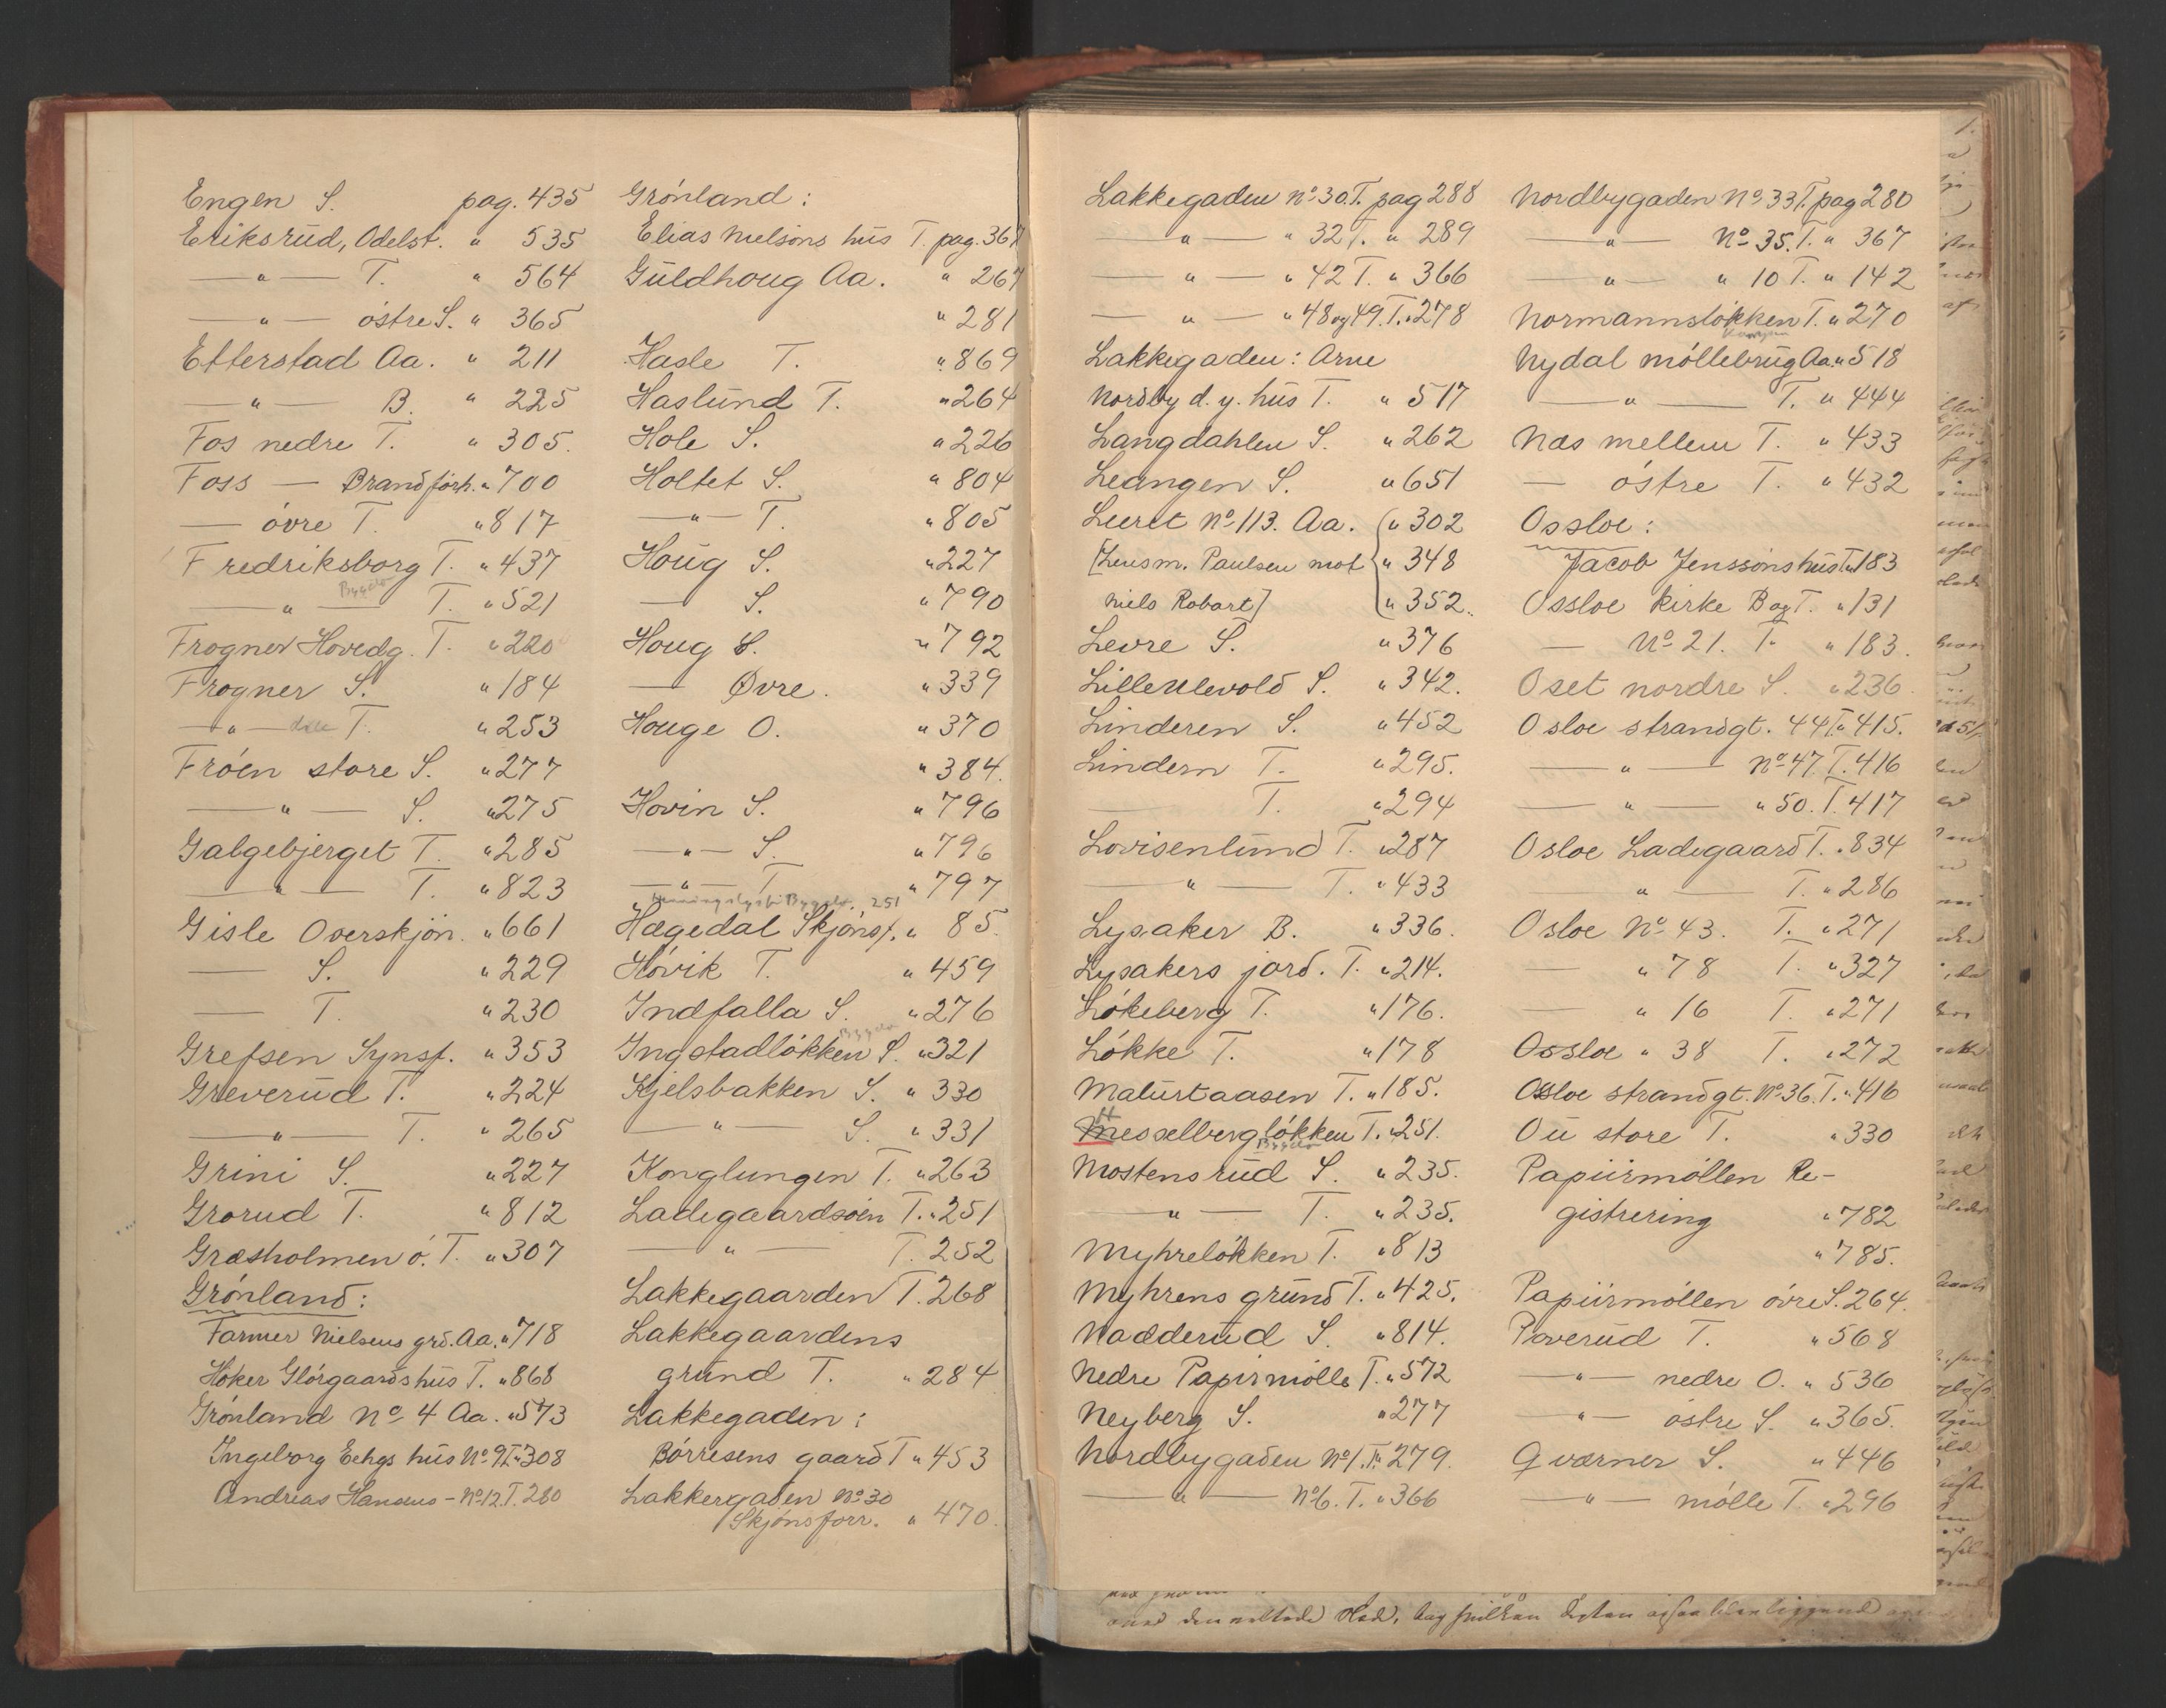 Engen S. pag. 435
Eriksrud, Odelst. " 535
— " — T. " 564
— " — östre S. " 365
Etterstad Aa. " 211
— " — B. " 225
Fos nedre T. " 305.
Foss — Brandförh. " 700
— övre T. " 817
Fredriksborg T. " 437
Bygdø
— " — T. " 521
Frogner Hovedg. T. " 220
Frogner S. " 184
— " — T. " 253
Fröen store S. " 277
— " — S. " 275
Galgebjerget T. " 285
— " — T. " 823
Gisle Overskjön. " 661
— S. " 229
— T. " 230
Grefsen Synsf. " 353
Greverud T. " 224
— " — T. " 265
Grini S. " 227
Grorud T. " 812
Græsholmen ö. T. " 307
Grönland:
Farmer Nielsens grd. Aa. " 718
Höker Glörgaards hus T. " 868
Grönland No 4 Aa. " 573
Ingeborg Echgs hus No 9 T. " 308
Andreas Hansens — No 12 T. 280
Grönland:
Elias Nielsöns hus T. pag. 367
Guldhoug Aa. " 267
" 281
Hasle T. " 869
Haslund T. " 264
Hole S. " 226
Holtet S. " 804
— " — T. " 805
Houg S. " 227
— S. " 790
Houg S. " 792
— Øvre. " 339
Houge O. " 370
" 384.
Hovin S. " 796
— " — S. " 796
— " — T. " 797
Bygdø. 251
Hægedal Skjönsf. " 85.
Hövik T. " 459
Indfalla S. " 276
Bygdø
Ingstadlökken S. " 321
Kjelsbakken S. " 330
— " — S. " 331
Konglungen T. " 263
Ladegaardsöen T. " 251
— " — T. 252
Lakkegaarden T. 268
Lakkegaardens
grund T. " 284
Lakkegaden:
Börresens gaard T " 453
Lakkergaden No 30
Skjönsforr. " 470.
Lakkegaden No 30. T. pag 288
— " — " 32 T. " 289
— " — " 42 T. " 366
— " — " 48 og 49. T. " 278
Lakkegaden: Arne
Nordby d. y. hus T. " 517
Langdahlen S. " 262
Leangen S. " 651
Leeret No 113. Aa. ( " 302
[Lensm. Paulsen mot " 348
Niels Robart] " 352.
Levre S. " 376
Lilleulevold S. " 342.
Linderen S. " 452
Lindern T. " 295.
— T. " 294
Lovisenlund T. " 287
— " — T. " 433
Lysaker B. " 336.
Lysakers jord. T. " 214.
Lökeberg T. " 176.
Lökke T. " 178
Maturtaasen T. " 185.
H
Messelberglökken T. " 251.
Bygdø
Mostensrud S. " 235.
— " — T. " 235.
Myhrelökken T. " 813
Myhrens grund T. " 425.
Nadderud S. " 814.
Nedre Papirmölle T. " 572
Neyberg S. " 277
Nordbygaden No 1. T. " 279.
— " — No 6. T. " 366
Nordbygaden No 33 T. pag 280
— " — No 35. T. " 367
— " — " 10 T. " 142
Normannslökken T. " 270
Nydal möllebrug Aa. " 518
— " — T. " 444
Næs mellem T. " 433
— östre T. " 432
Ossloe:
Jacob Jenssons hus T. " 183
Ossloe kirke B og T. " 131
— No 21. T. " 183.
Oset nordre S. " 236.
Osloe strandgt. 44 T. " 415.
— " — No 47. T. 416
— " — " 50. T. 417
Osloe Ladegaard T. " 834
— " — T. " 286
Osloe No 43. T. " 271
— " 78 T. " 327
— " 16 T. " 271
Ossloe " 38 T. " 272
Osloe strandgt. No 36. T. " 416
Ou store T. " 330
Papiirmöllen Re-
gistrering " 782
" 785.
Papiirmöllen övre S. 264.
Poverud T. " 568
— " — nedre O. " 536
— " — östre S. " 365.
Qværner S. " 446
— " — mölle T. " 296